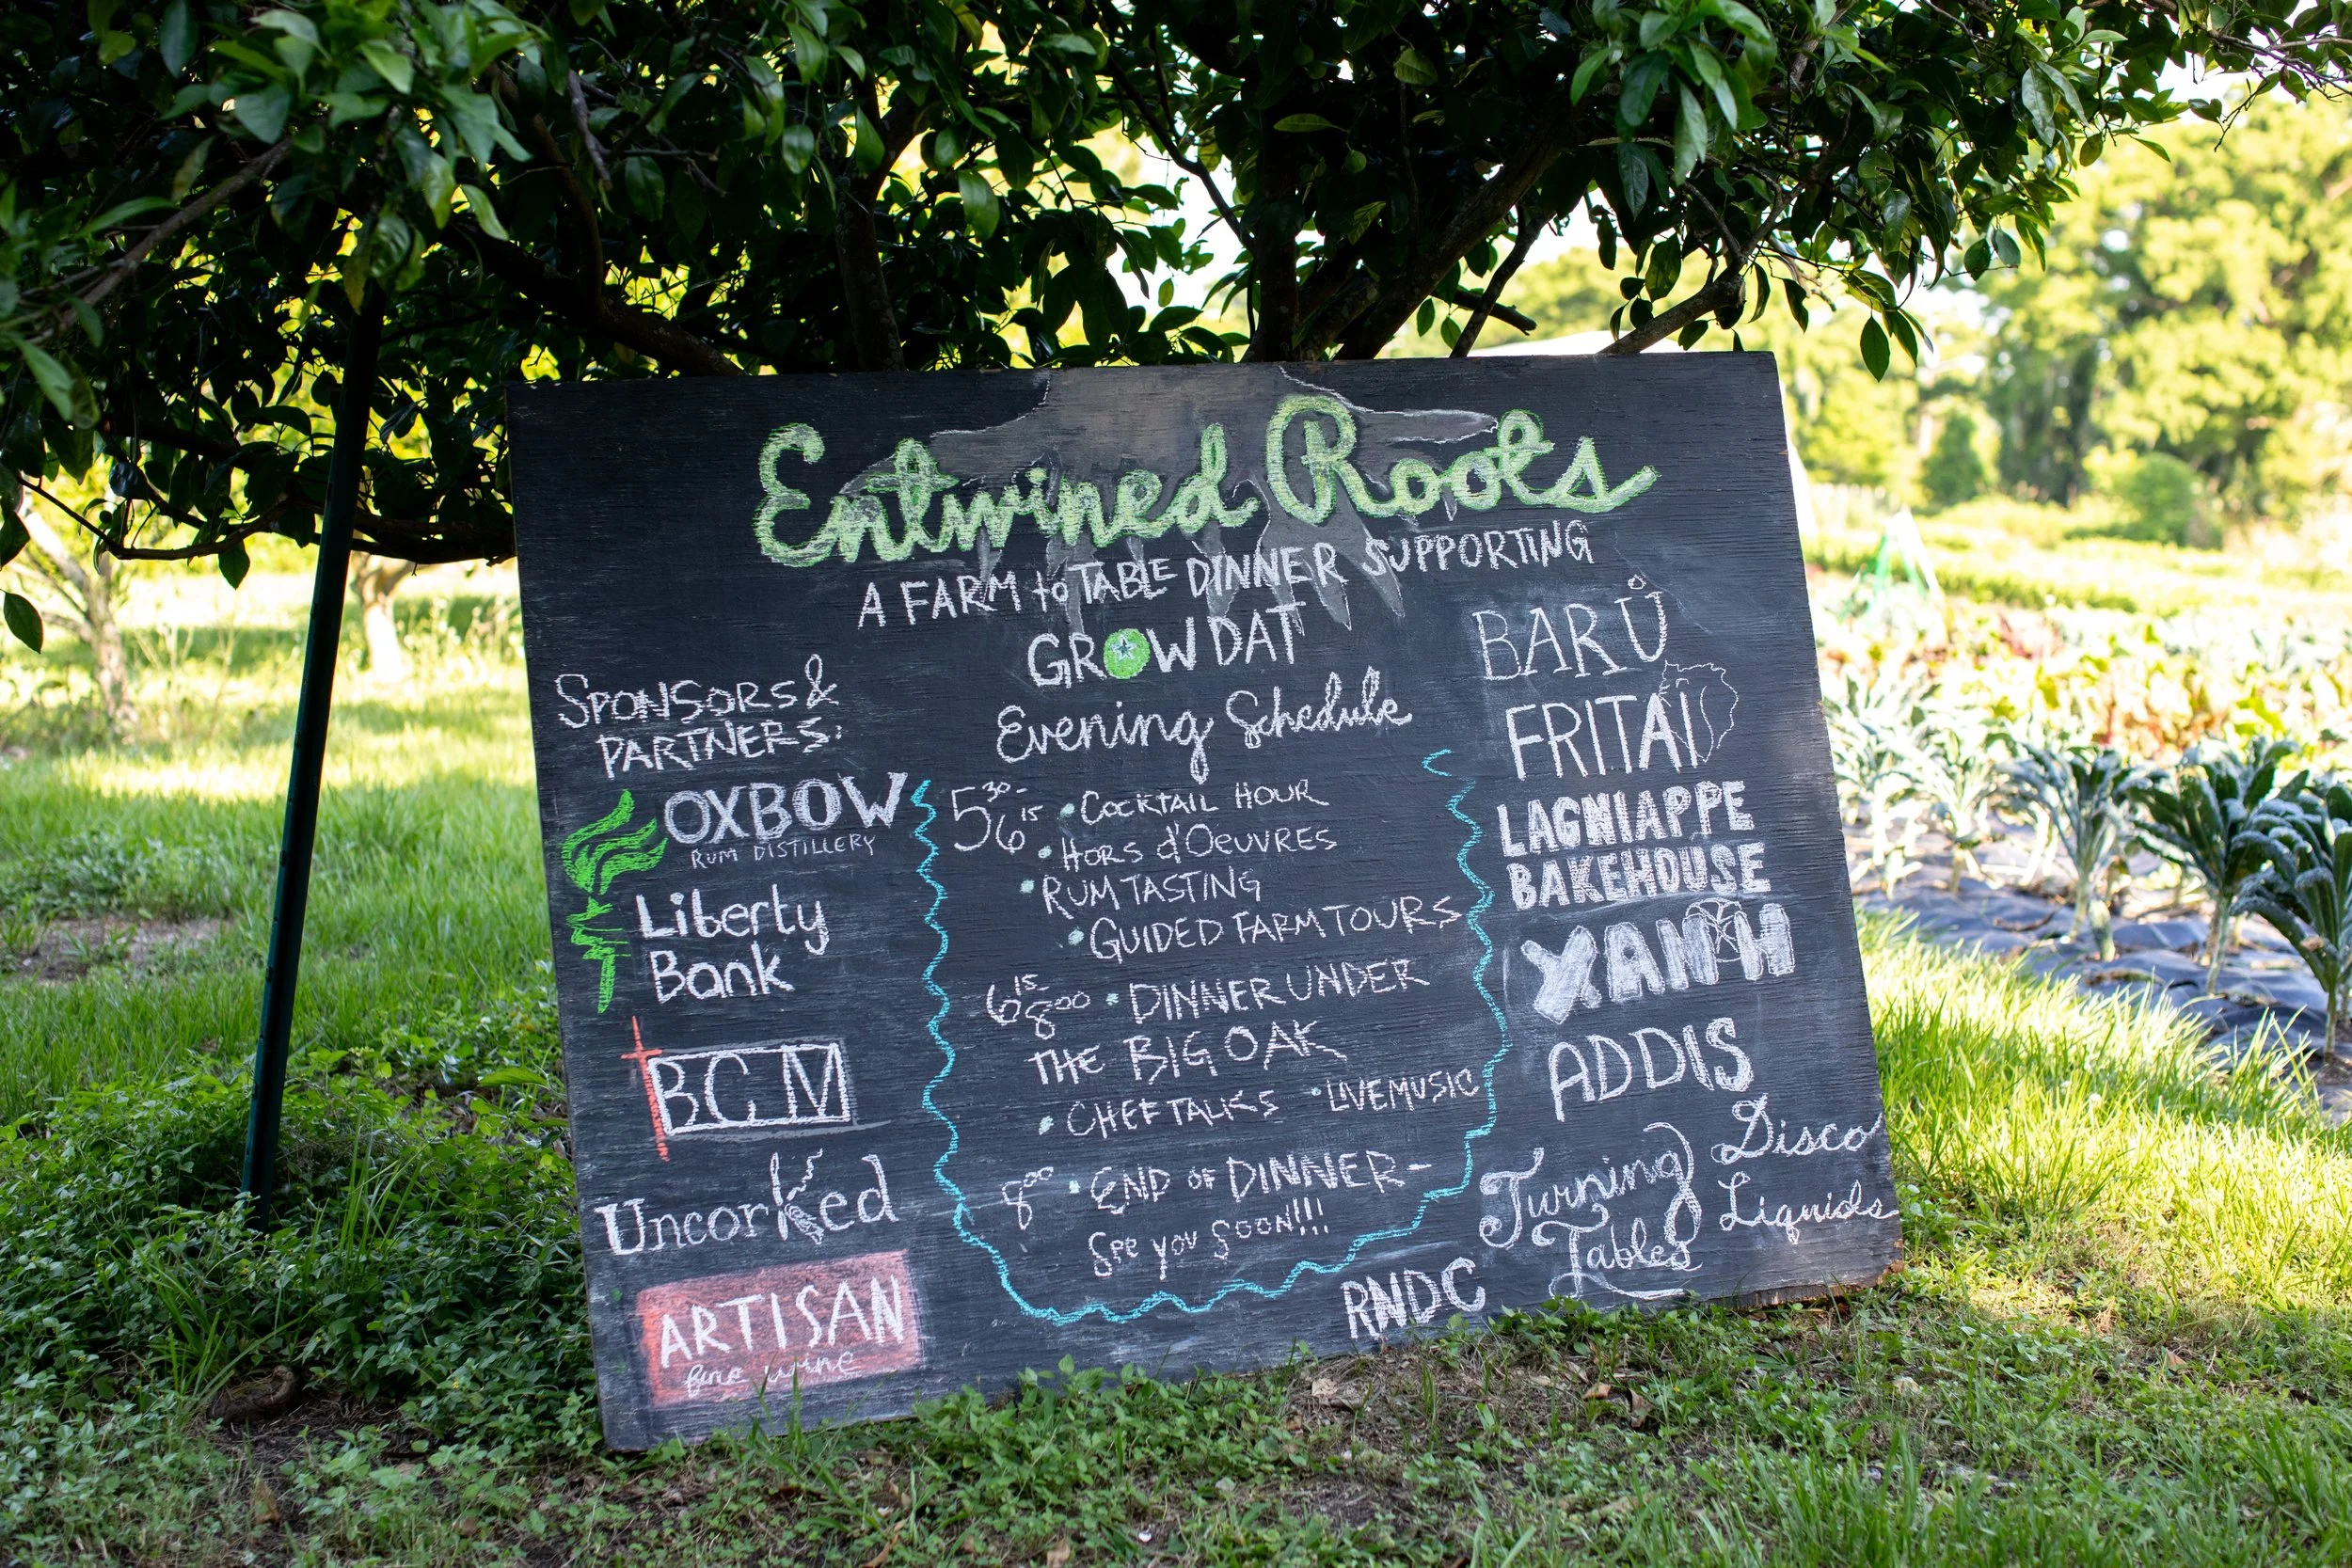 Entwined Roots
A FARM to TABLE DINNER SUPPORTING
GROW DAT
SPONSORS &
PARTNERS:
OXBOW
RUM DISTILLERY
Liberty
Bank
BCM
Uncorked
ARTISAN
fine wine
Evening Schedule
5:30-
6:15 • COCKTAIL HOUR
• HORS d'OEUVRES
• RUM TASTING
• GUIDED FARM TOURS
6:15-
8:00 • DINNER UNDER
THE BIG OAK
• CHEF TALKS • LIVE MUSIC
8:00 • END OF DINNER-
SEE YOU SOON!!!
BARÜ
FRITAI
LAGNIAPPE
BAKEHOUSE
XANH
ADDIS
Turning
Tables
Disco
Liquids
RNDC